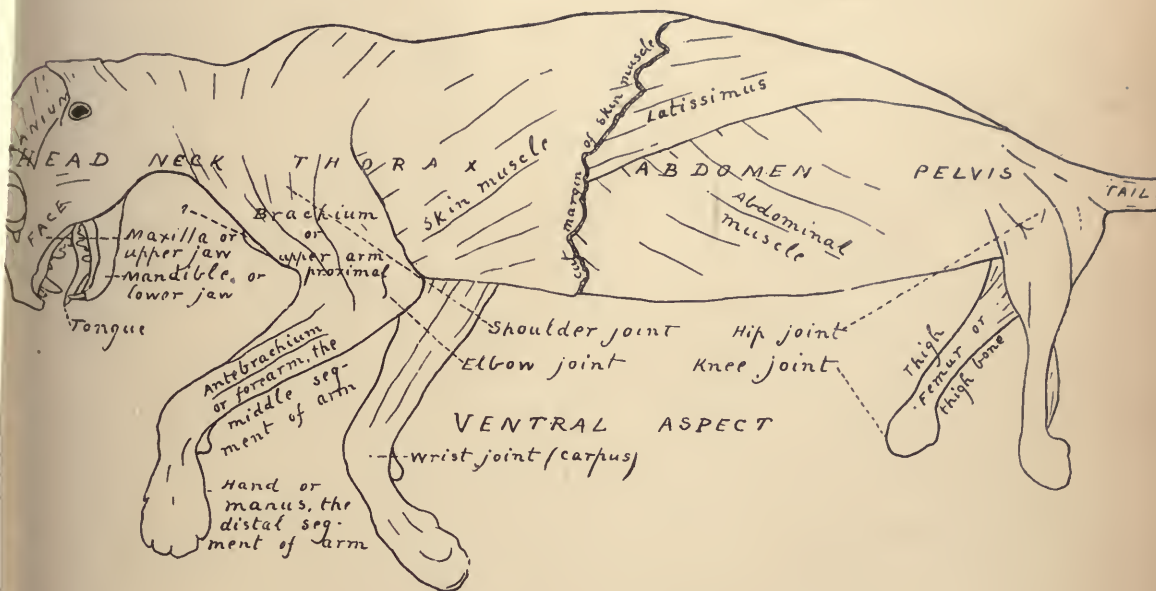 CRANIUM
HEAD NECK THORAX ABDOMEN PELVIS TAIL
FACE
Maxilla or
upper jaw
Mandible, or
lower jaw
Tongue
?
Brachium
or
upper arm
proximal
Skin muscle
cut margin of skin muscle
Latissimus
Abdominal
muscle
Shoulder joint
Elbow joint
Hip joint
Knee joint
Thigh
Femur or
thigh bone
Antebrachium
or forearm, the
middle seg-
ment of arm
VENTRAL ASPECT
Wrist joint (carpus)
Hand or
manus, the
distal seg-
ment of arm